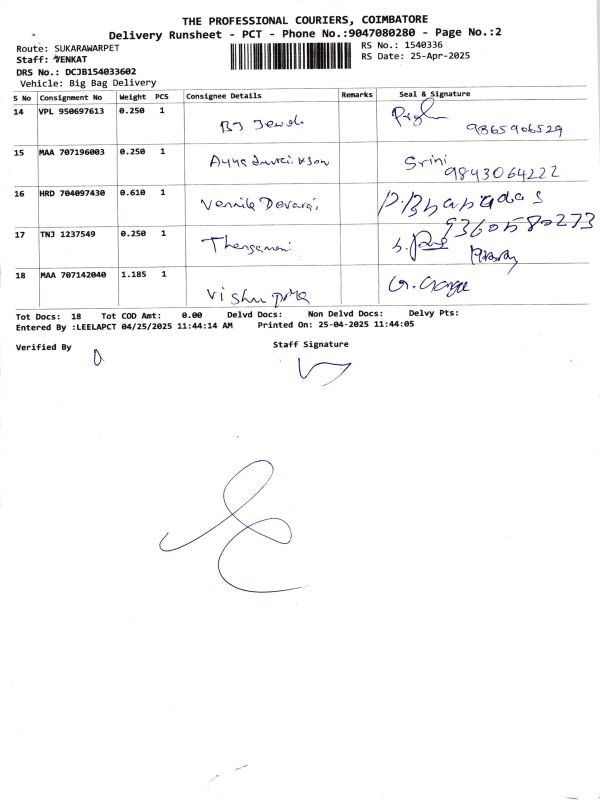 THE PROFESSIONAL COURIERS, COIMBATORE
Delivery Runsheet - PCT - Phone No.:9047080280 - Page No.:2
Route: SUKARAWARPET
RS No.: 1540336
Staff: VENKAT
RS Date: 25-Apr-2025
DRS No.: DCJB154033602
Vehicle: Big Bag Delivery
S No Consignment No Weight PCS Consignee Details Remarks Seal & Signature
14 VPL 950697613 0.250 1 BJ Jewels
9865906529
15 MAA 707196003 0.250 1 Srini
9843064222
16 HRD 704097430 0.610 1 Vennila Devaraj
9360580273
17 TNJ 1237549 0.250 1 Thangamani
18 MAA 707142040 1.185 1 Vishu
Tot Docs: 18 Tot COD Amt: 0.00 Delvd Docs: Non Delvd Docs: Delvy Pts:
Entered By :LEELAPCT 04/25/2025 11:44:14 AM Printed On: 25-04-2025 11:44:05
Verified By
Staff Signature